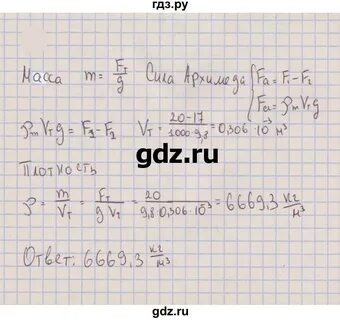 гдз.ру
Масса m = Fт/g Сила Архимеда { Fa = F₁ - F₂
Fa = ρm Vт g
ρm Vт g = F₁ - F₂ Vт = 20-17/1000·9,8 = 0,306·10⁻³ м³
Плотность
gdz.ru
ρ = m/Vт = Fт/g Vт = 20/9,8·0,306·10⁻³ = 6669,3 кг/м³
Ответ: 6669,3 кг/м³
gdz.ru